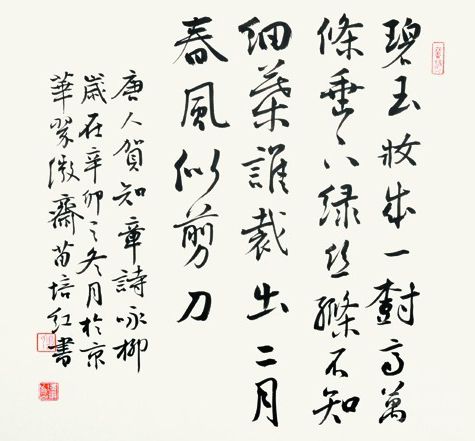 碧玉妝成一樹高萬
條垂下绿丝絛不知
细葉誰裁出二月
春風似剪刀
唐人賀知章詩咏柳
歲在辛卯之冬月於京
華翠微齋苗培红書